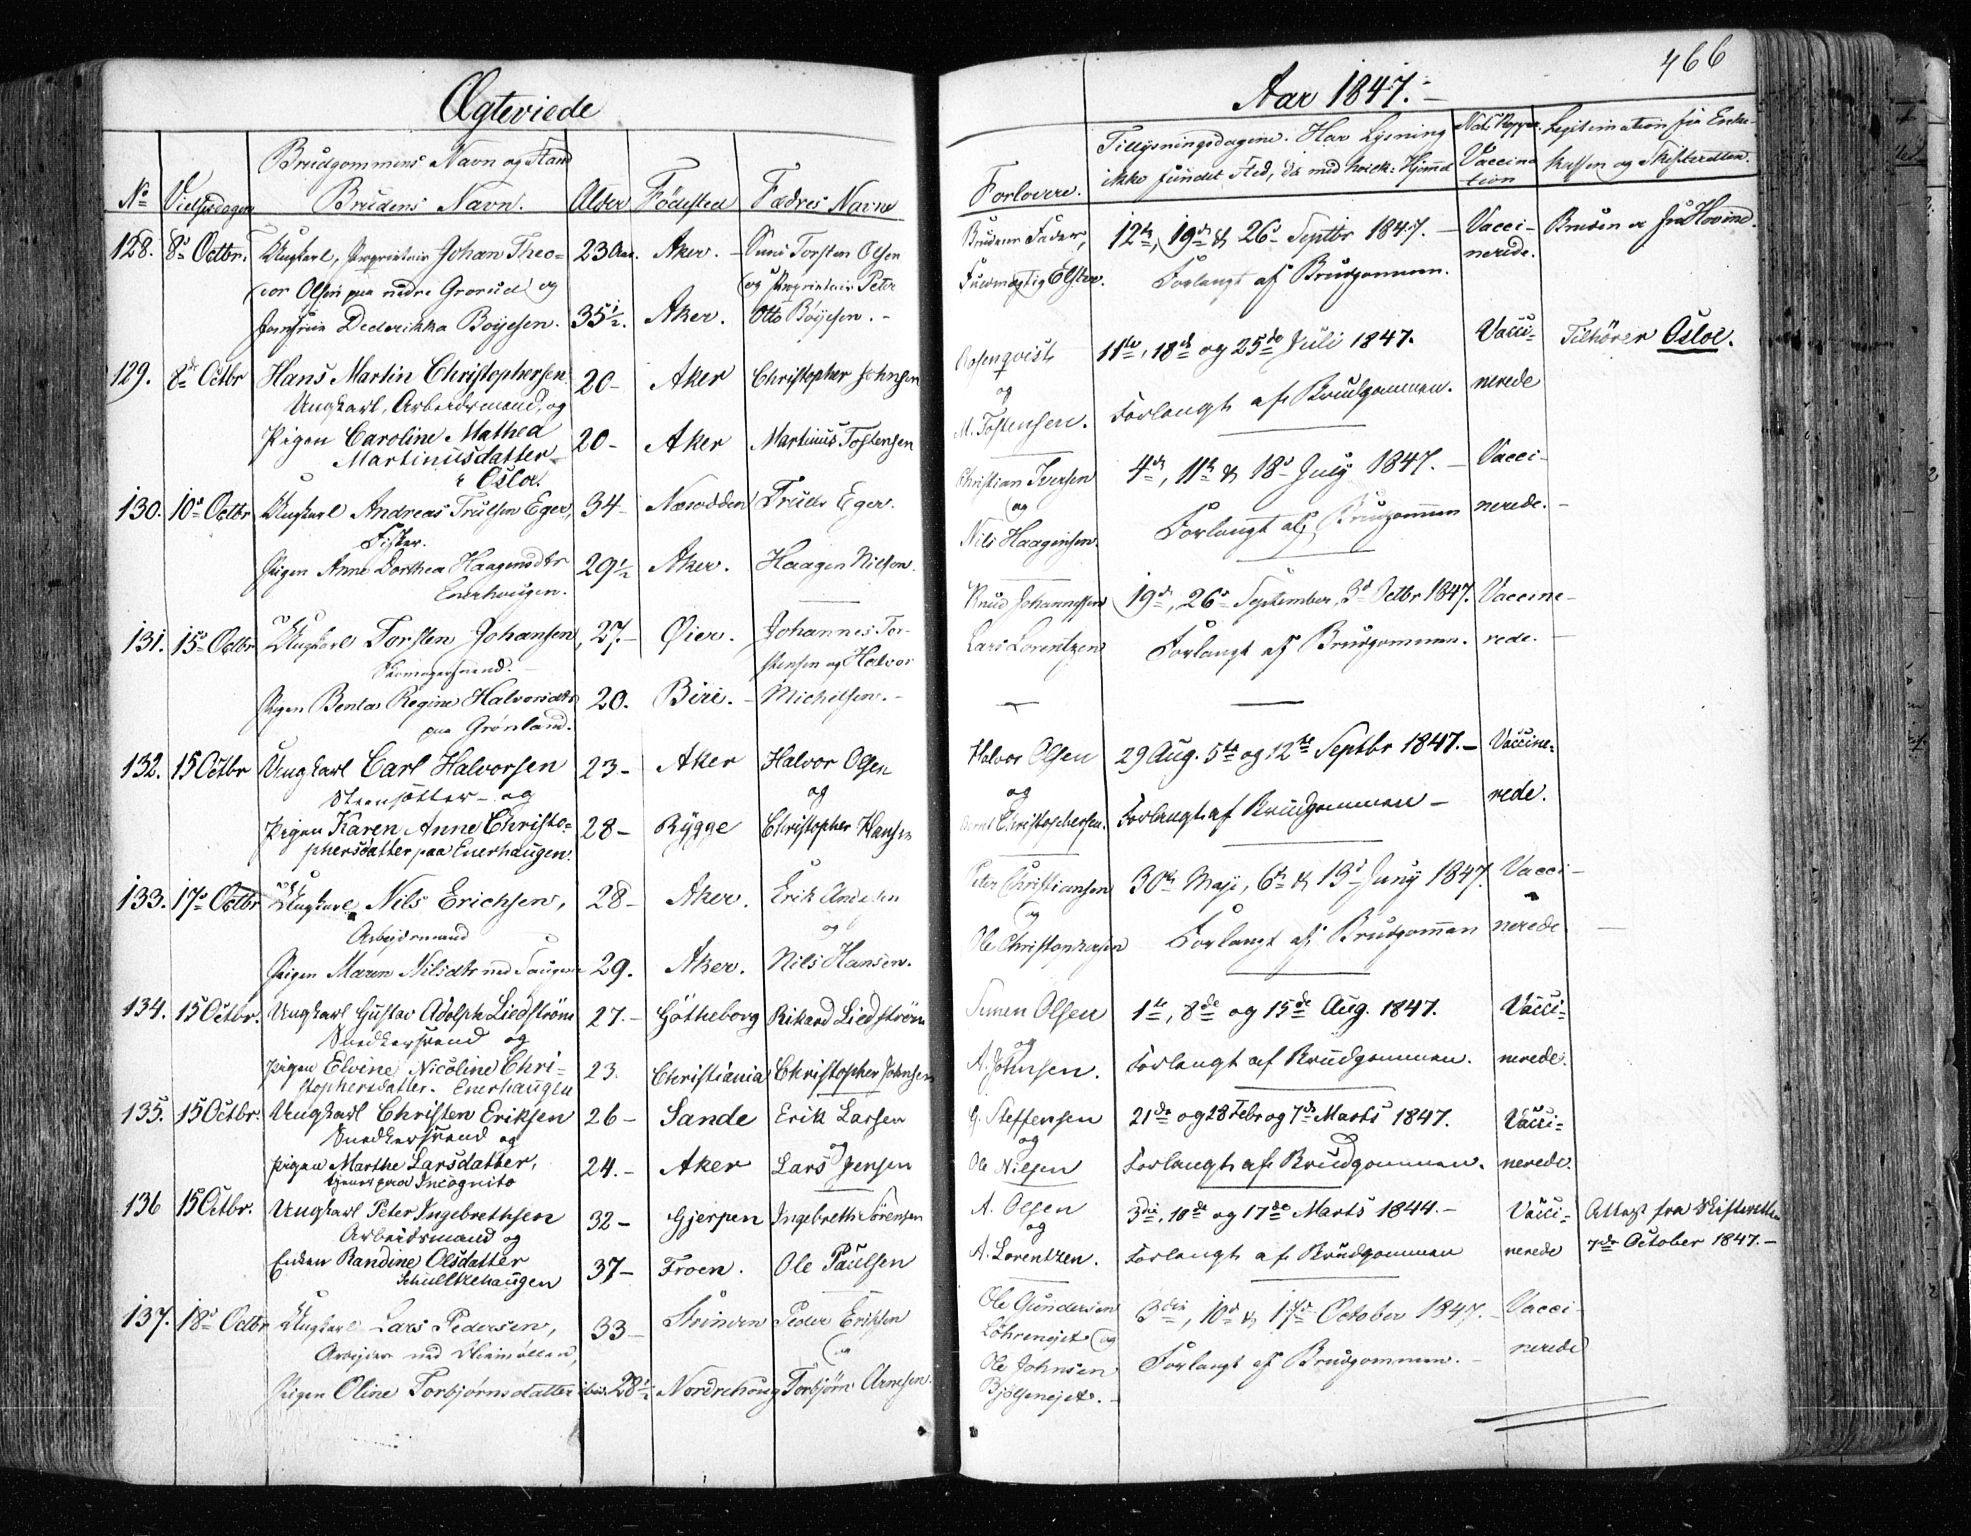 Ægteviede
Aar 1847.
466
No
Vielsesdagen
Brudgommens Navn og Stand
Brudens Navn.
Alder
Fødested
Fædres Navne
Forlovere.
Tillysningsdagene. Har Lysning
ikke fundet Sted, da med hvilk: Hjemmel
Nat. Kopper
Vaccina
tion
Legitimation fra Enke-
kassen og Skifteretten.
128. 8de Octbr. Ungkarl, Proprietair Johan Theo- 23 Aar. Aker. Torsten Olsen
dor Olsen paa nedre Grorud og og Proprietair Peter
Jomfrue Dederikka Boyesen. 35½. Aker. Otto Böyesen.
Brudens Fader, 12te, 19de & 26de Septbr 1847. Vacci- Bruden er fra Hovind.
Fuldmægtig Elster. Forlangt af Brudgommen. nerede.
129. 8de Octbr Hans Martin Christophersen 20 Aker Christopher Johnsen
Ungkarl, Arbeidsmand, og
Pigen Caroline Mathea 20 Aker Martinus Tostensen
Martinusdatter
Oslo.
Rosenqvist 11te, 18de og 25de Juli 1847. Vacci- Tilhører Osloe.
og
M. Tostensen. Forlangt af Brudgommen. nerede
130. 10de Octbr Ungkarl Andreas Trulsen Eger, 34 Næsodden Truls Eger.
Fisker.
Pigen Anne Dorthea Haagensdtr 29½ Aker. Haagen Nilsen.
Enerhougen.
Christian Iversen 4de, 11te & 18de July 1847. Vacci-
og
Nils Haagensen. Forlangt af Brudgommen nerede.
131. 15de Octbr Ungkarl Torsten Johansen, 27. Øier. Johannes Tor-
Skomagersvend. stensen og Halvor
Pigen Benta Regine Halvorsdtr 20. Biri. Michelsen.
paa Grønland.
Knud Johannessen 19de, 26de September, 3de Octbr 1847. Vaccine-
Lars Lorentzen Forlangt af Brudgommen. rede.
132. 15 Octbr Ungkarl Carl Halvorsen 23 Aker Halvor Olsen
Steensætter og og
Pigen Karen Anne Christo- 28 Rygge Christopher Hansen
phersdatter paa Enerhaugen.
Halvor Olsen 29 Aug. 5te og 12te Septbr 1847. Vaccine-
og
Christophersen. Forlangt af Brudgommen rede.
133. 17de Octbr Ungkarl Nils Erichsen, 28 Aker. Erik Andersen
Arbejdsmand og
Pigen Maren Nilsdtr 29. Aker. Nils Hansen.
Peter Christiansen 30te Maji, 6te & 13de Juny 1847. Vacci-
og
Ole Christophersen Forlangt af Brudgommen nerede
134. 15 Octbr. Ungkarl Gustav Adolph Liedström 27. Götheborg Rikard Liedström
Snedkersvend og
Pigen Elvine Nicoline Chri- 23. Christiania Christopher Johnsen
stophersdatter. Enerhaugen
Simen Olsen 1te, 8de og 15de Aug. 1847. Vacci-
og
A. Johnsen. Forlangt af Brudgommen. nerede.
135. 15 Octbr. Ungkarl Christen Eriksen 26 Sande Erik Larsen
Snedkersvend og og
Pigen Marthe Larsdatter, 24. Aker Lars Jensen
tjener paa Incognito
G. Steffensen 21de og 28 Febr og 7de Marts 1847. Vacci-
og
Ole Nilsen Forlangt af Brudgommen. nerede.
136 15 Octbr. Ungkarl Peter Ingebrethsen 32 Gjerpen Ingebreth Sörensen
Arbeidsmand og
Enken Randine Olsdatter 37 Froen. Ole Paulsen
Schultzehaugen
A. Olsen 3die, 10de og 17de Marts 1844. Vacci- Attest fra Skifteretten
og
A. Lorentzen. Forlangt af Brudgommen nerede 7de October 1847.
137. 18de Octbr Ungkarl Lars Pedersen, 33 Strinden Peder Eriksen
Arbejder og
Pigen Oline Torbjørnsdatter ibid. 28½ Nordrehoug Torbjörn Arnesen.
Ole Gundersen 3die, 10de & 17de October 1847. Vacci-
og
Ole Johnsen Forlangt af Brudgommen. nerede